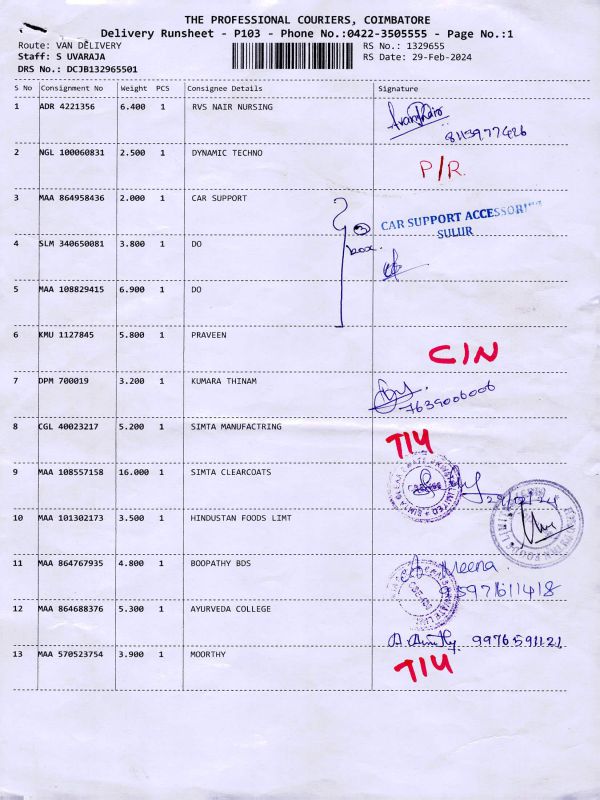 THE PROFESSIONAL COURIERS, COIMBATORE
Delivery Runsheet - P103 - Phone No.:0422-3505555 - Page No.:1
Route: VAN DELIVERY RS No.: 1329655
Staff: S UVARAJA RS Date: 29-Feb-2024
DRS No.: DCJB132965501
S No Consignment No Weight PCS Consignee Details Signature
1 ADR 4221356 6.400 1 RVS NAIR NURSING
8113977426
2 NGL 100060831 2.500 1 DYNAMIC TECHNO P/R.
3 MAA 864958436 2.000 1 CAR SUPPORT 3 box. CAR SUPPORT ACCESSORI
SULUR
4 SLM 340650081 3.800 1 DO
5 MAA 108829415 6.900 1 DO
6 KMU 1127845 5.800 1 PRAVEEN C/N
7 DPM 700019 3.200 1 KUMARA THINAM
7639006006
8 CGL 40023217 5.200 1 SIMTA MANUFACTRING T14
9 MAA 108557158 16.000 1 SIMTA CLEARCOATS
10 MAA 101302173 3.500 1 HINDUSTAN FOODS LIMT
11 MAA 864767935 4.800 1 BOOPATHY BDS Meena
9597611418
12 MAA 864688376 5.300 1 AYURVEDA COLLEGE
9976591121
13 MAA 570523754 3.900 1 MOORTHY T14